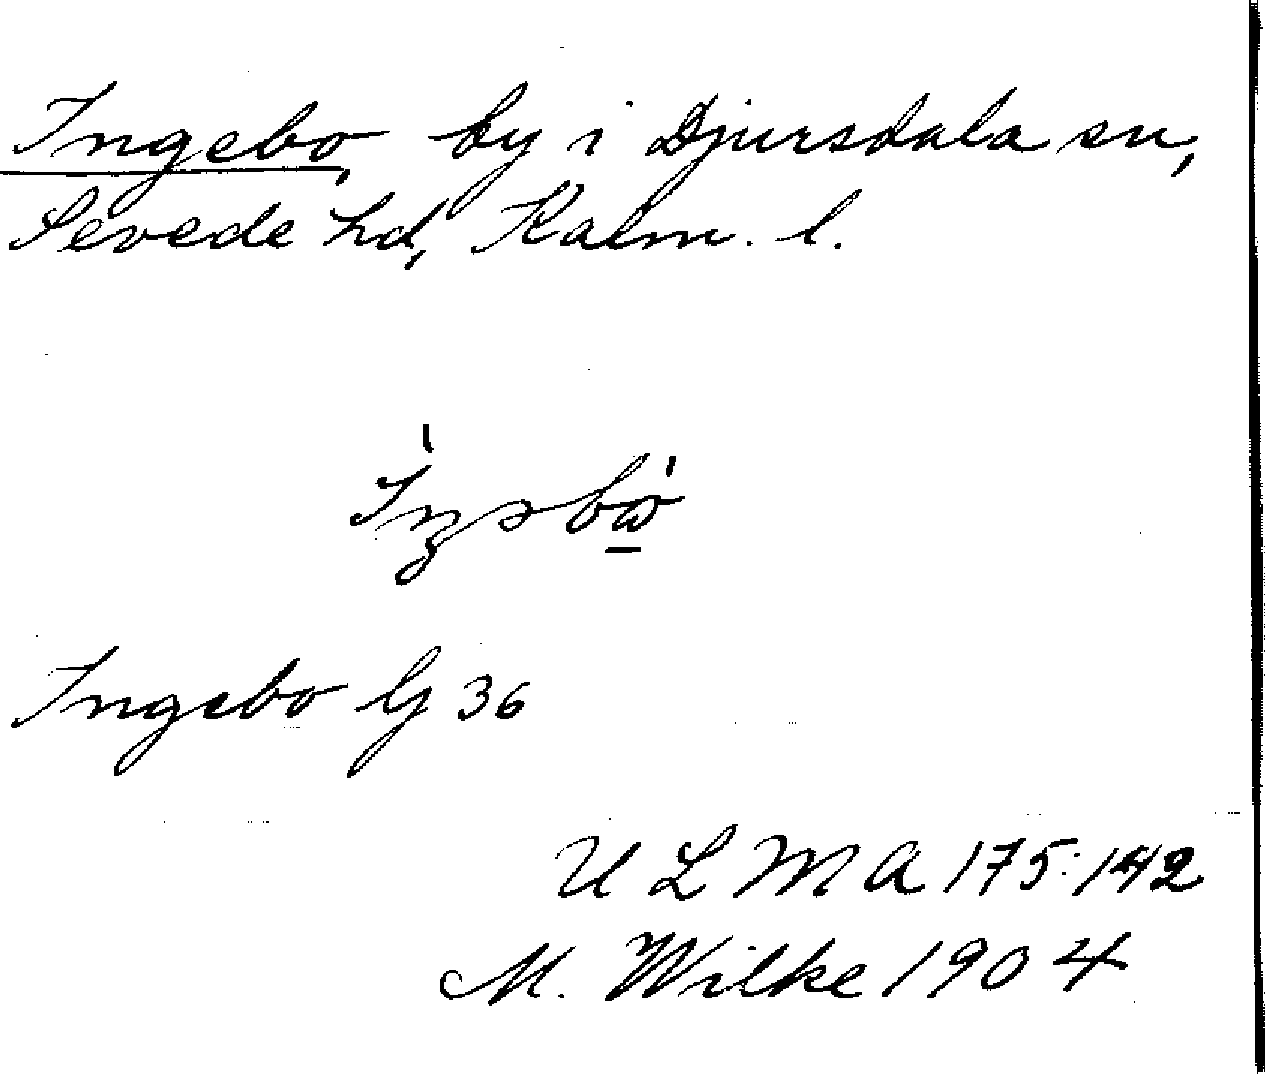 Ingebo, by i Djursdala sn,
Sevede hd, Kalm. l.
Ingebo G 36
U L M A 175:142
M. Wilke 1904